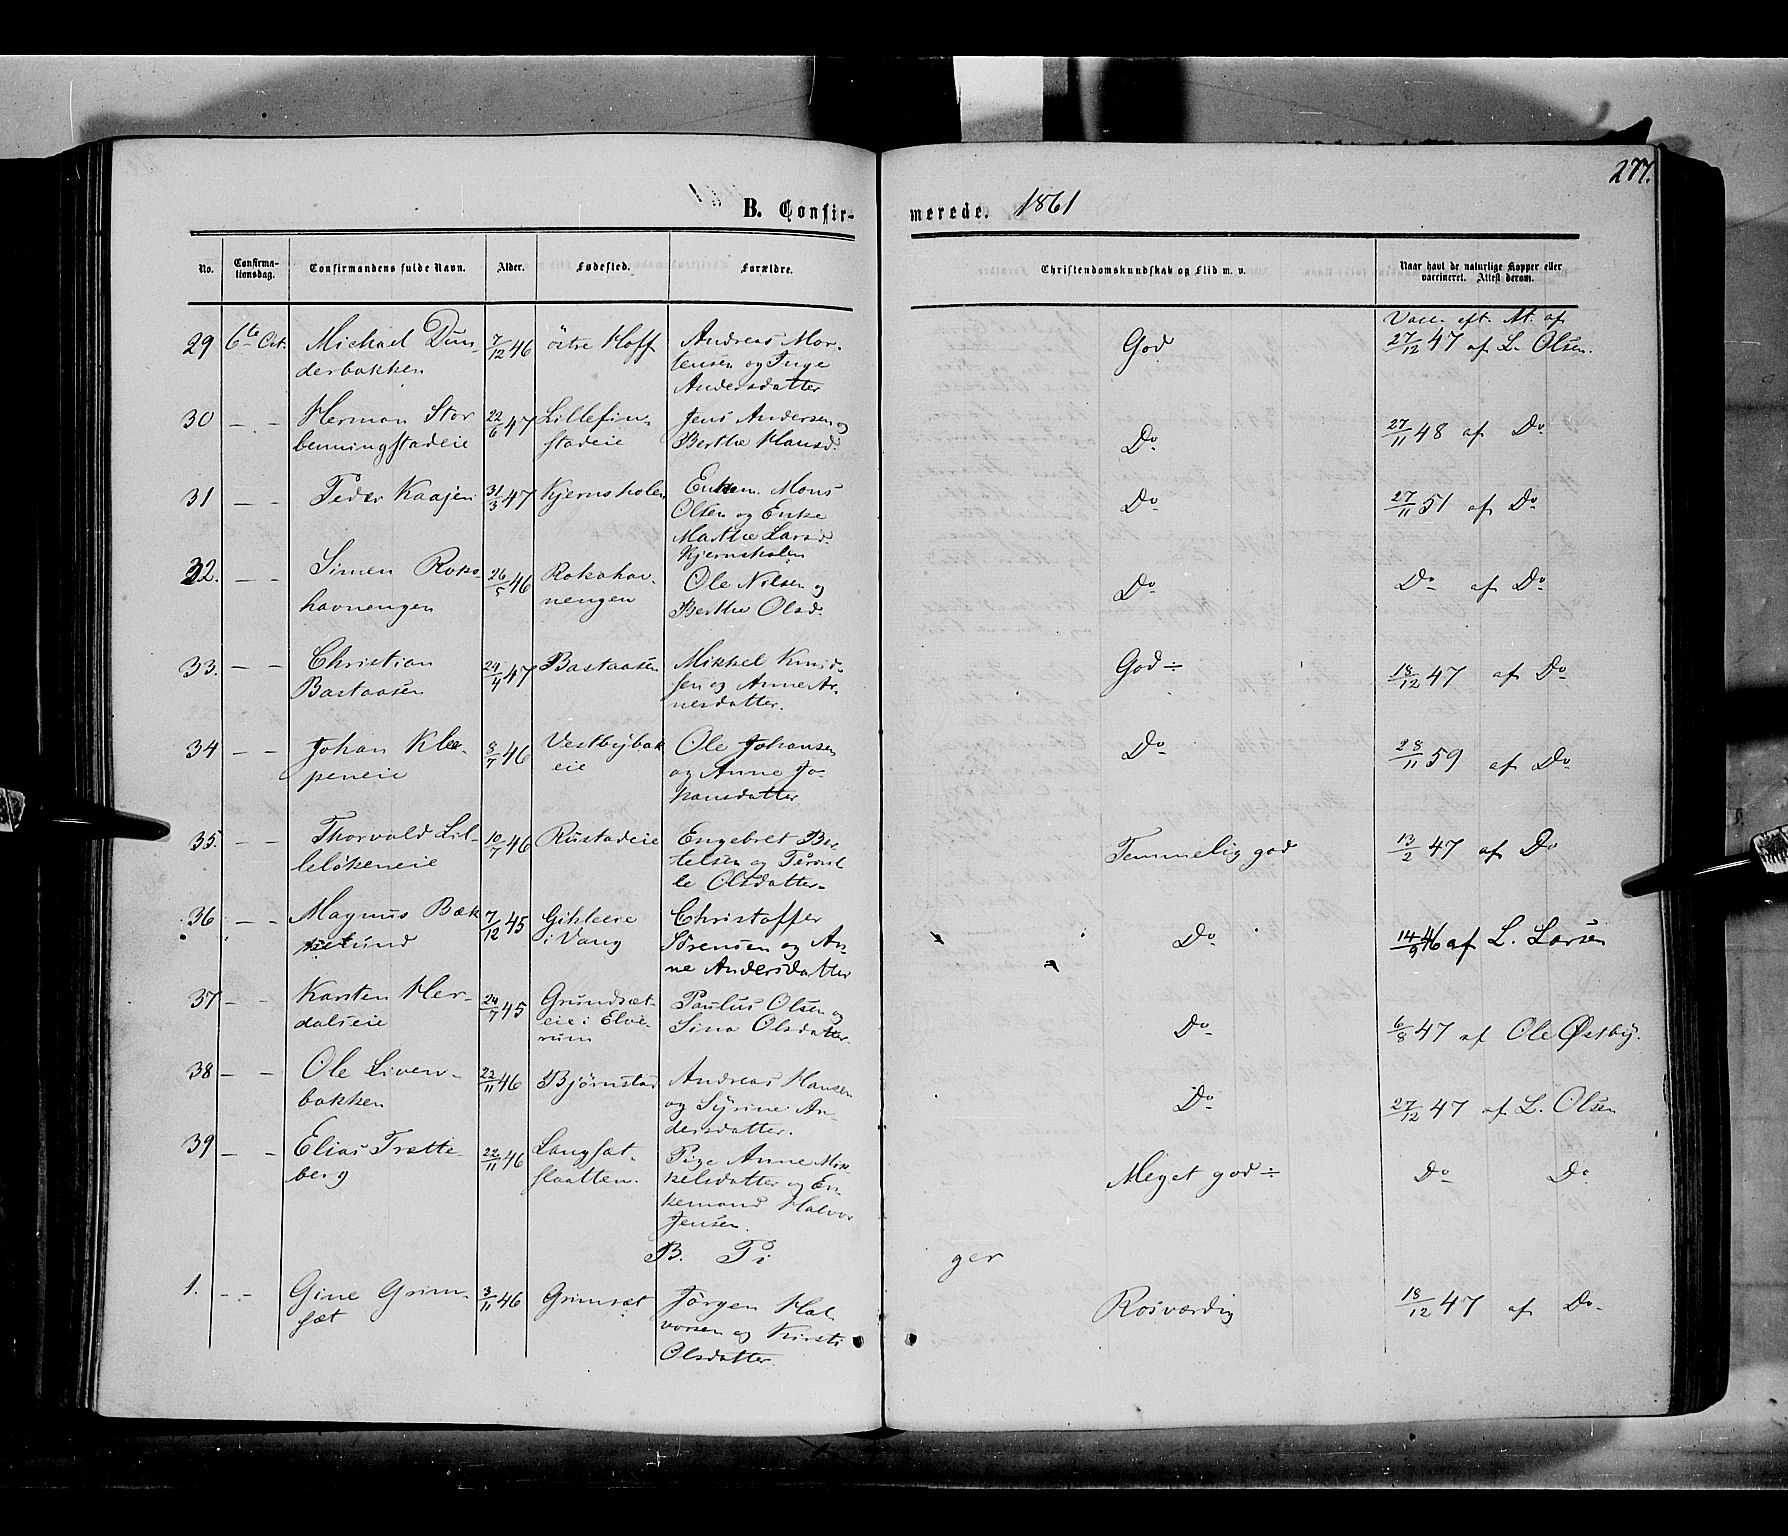 277.
B. Confir-
merede. 1861
No.
Confirma-
tionsdag.
Confirmandens fulde Navn.
Alder.
Fødested.
Forældre.
Christendomskundskab og Flid m. v.
Naar havt de naturlige Kopper eller
vaccineret. Attest derom.
29 6te Oct. Michael Dun-
derbakken
7/12 46 östre Hoff
Andreas Mor-
tensen og Inge
Andersdatter
God
Vacc. eft. At. af
27/12 47 af L. Olsen.
30 — — Herman Stor
benningstadeie
22/6 47 Lillefin-
stadeie
Jens Andersen og
Berthe Hansd.
Do
27/11 48 af Do
31 — — Peder Kaajen
31/3 47 Kjernsholen
Enkem. Mons
Olsen og Enke
Marthe Larsd.
Kjernsholen
Do
27/11 51 af Do
32. — — Simen Roko
havnengen
26/5 46 Rokohav-
nengen
Ole Nilsen og
Berthe Olsd.
Do
Do af Do
33. — — Christian
Bastaasen
24/4 47 Bastaasen
Mikkel Knud-
sen og Anne Ar-
nesdatter.
God ÷
18/12 47 af Do
34 — — Johan Klep-
peneie
8/7 46 Vestbybak
eie
Ole Johansen
og Anne Jo-
hansdatter
Do
28/11 59 af Do
35. — — Thorvald Lil-
leløkeneie
10/7 46 Rustadeie
Engebret Ber-
telsen og Pernil-
le Olsdatter.
Temmelig god
13/2 47 af Do
36 — — Magnus Bæk
kelund
7/12 45 Gihleeie
i Vang
Christoffer
Sörensen og An-
ne Andersdatter
Do
14/9 46 af L. Larsen
37 — — Karsten Her-
dalseie
24/7 45 Grundsæt-
eie i Elve-
rum
Paulus Olsen og
Sina Olsdatter.
Do
6/8 47 af Ole Østby.
38 — — Ole Liven-
bakken
22/11 46 Bjørnstad
Andreas Hansen
og Syrine An-
dersdatter.
Do
27/12 47 af L. Olsen
39 — — Elias Trætte-
berg
22/11 46 Langsæt-
flaatten.
Pige Anne Mik-
kelsdatter og En-
kemand Halvor
Jensen.
Meget god ÷
Do Do
B. Pi
ger
1. — — Gine Grim-
sæt
3/11 46 Grimsæt
Jørgen Hal-
vorsen og Kirsti
Olsdatter.
Rosværdig
18/12 47 af Do